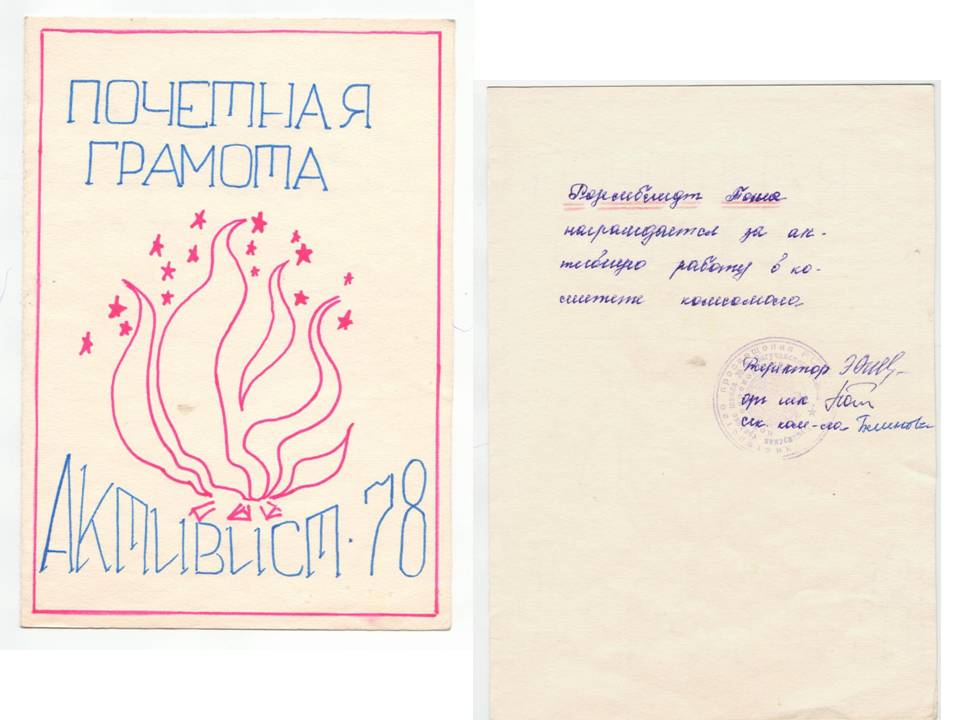 ПОЧЕТНАЯ
ГРАМОТА
АКТИВИСТ·78
Розенблидт Таня
награждается за ак-
тивную работу в ко-
митете комсомола
Директор
орг шк.
сек. ком-ла